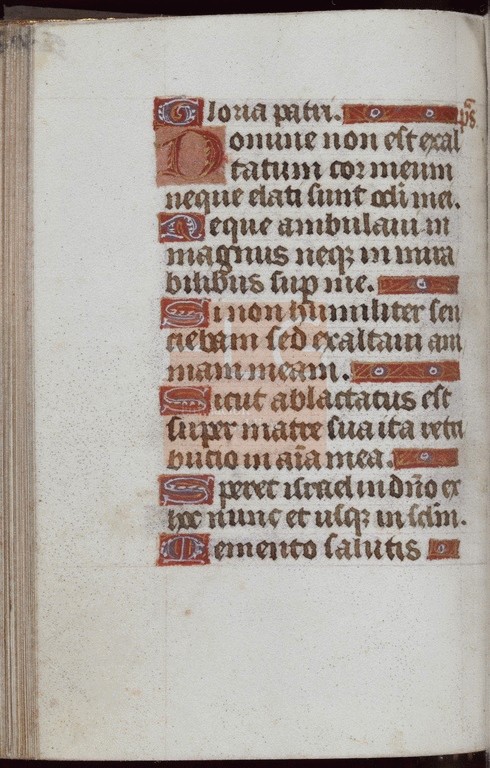 Gloria patri. ps̄.
Domine non est exal
tatum cor meum
neque elati sunt oculi mei.
Neque ambulaui in
magnis neqꝫ in mira
bilibus sup me.
Si non humiliter sen
ciebam sed exaltaui ani
mam meam.
Sicut ablactatus est
super matre sua ita retri
bucio in aīa mea.
Speret israel in dn̄o ex
hoc nunc et usqꝫ in sclm̄.
Memento salutis